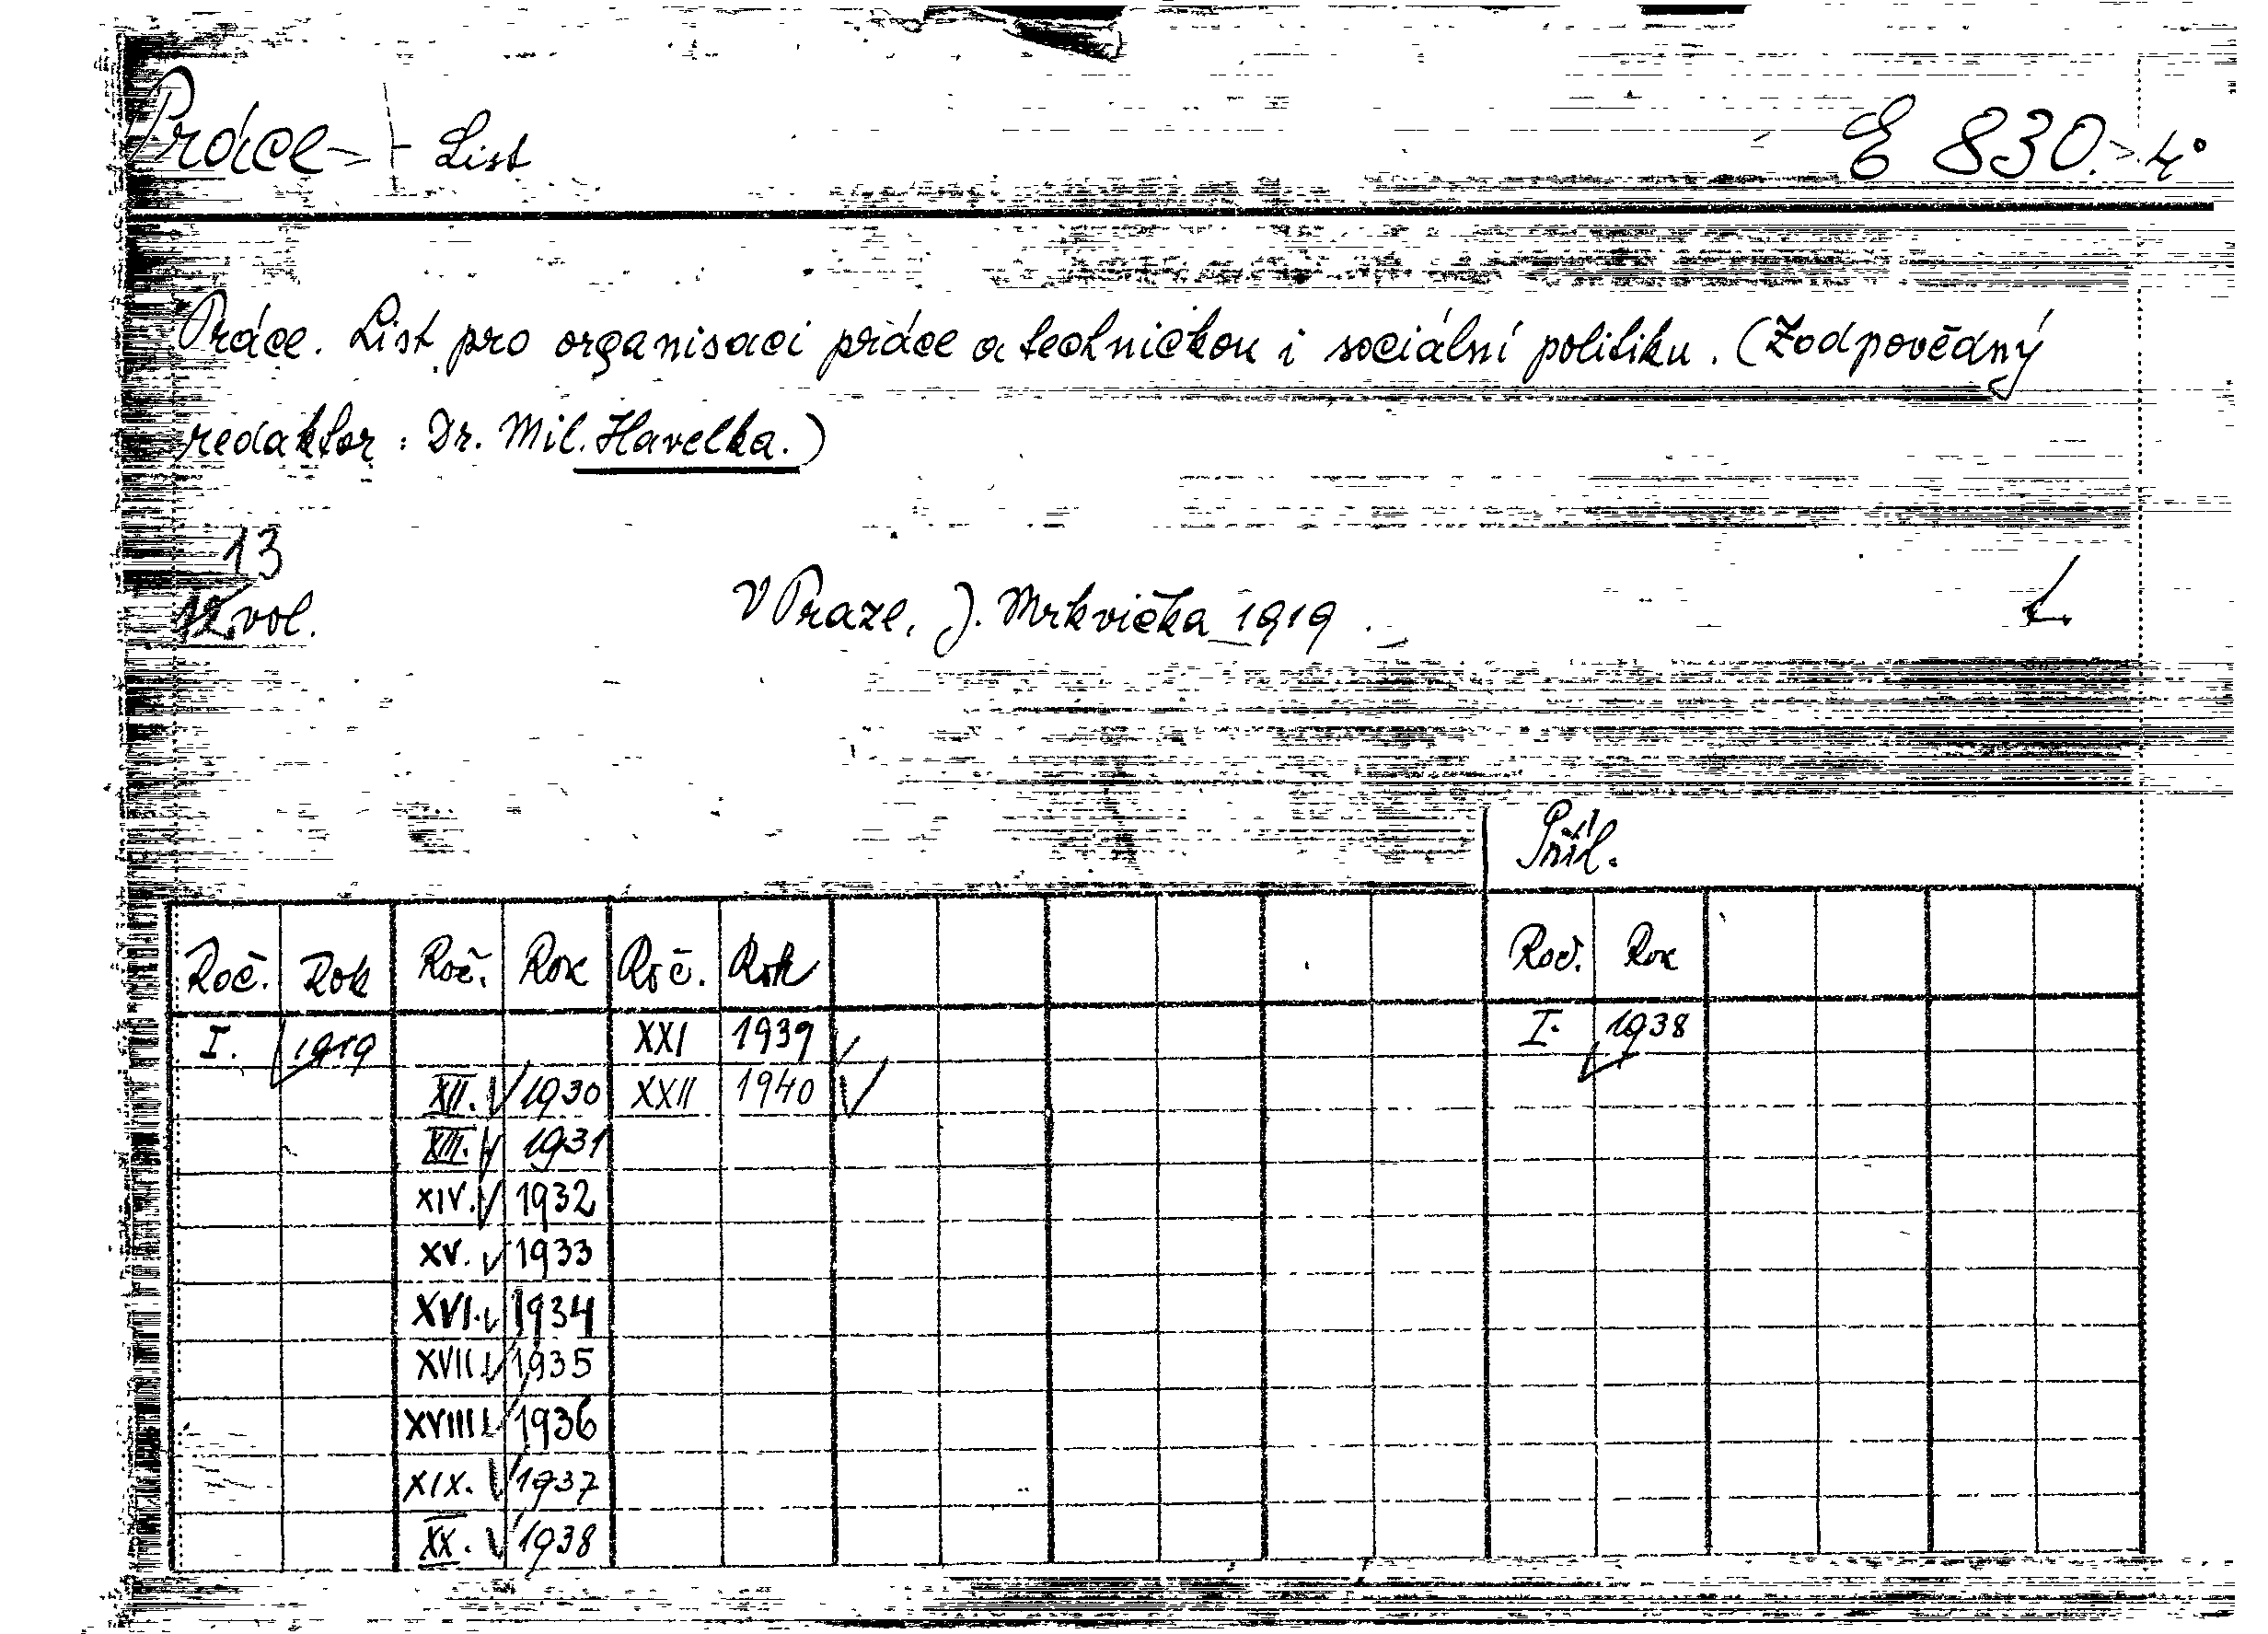 Práce - List E 830. 4°
Práce. List pro organisaci práce a technickou i sociální politiku. (Zodpovědný
redaktor: Dr. Mil. Havelka.)
13
12 vol. V Praze, J. Mrkvička 1919.
Příl.
Roč. Rok Roč. Rok Roč. Rok Roč. Rok
I. 1919 XXI 1939 I. 1938
XII. 1930 XXII 1940
XIII. 1931
XIV. 1932
XV. 1933
XVI. 1934
XVII 1935
XVIII 1936
XIX. 1937
XX. 1938